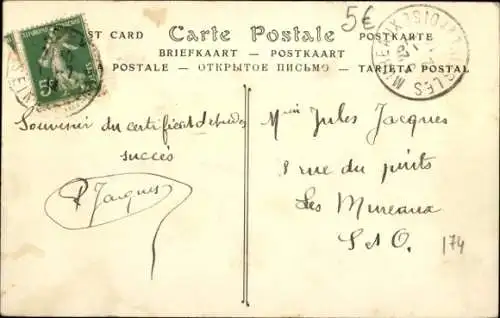 5€
ST CARD Carte Postale POSTKARTE
BRIEFKAART — POSTKAART
POSTALE — ОТКРЫТОЕ ПИСЬМО — TARJETA POSTAL
5
Souvenir du certificat d'études
succès
P Jacques
Jules Jacques
8 rue du puits
Les Mureaux
S & O.
174